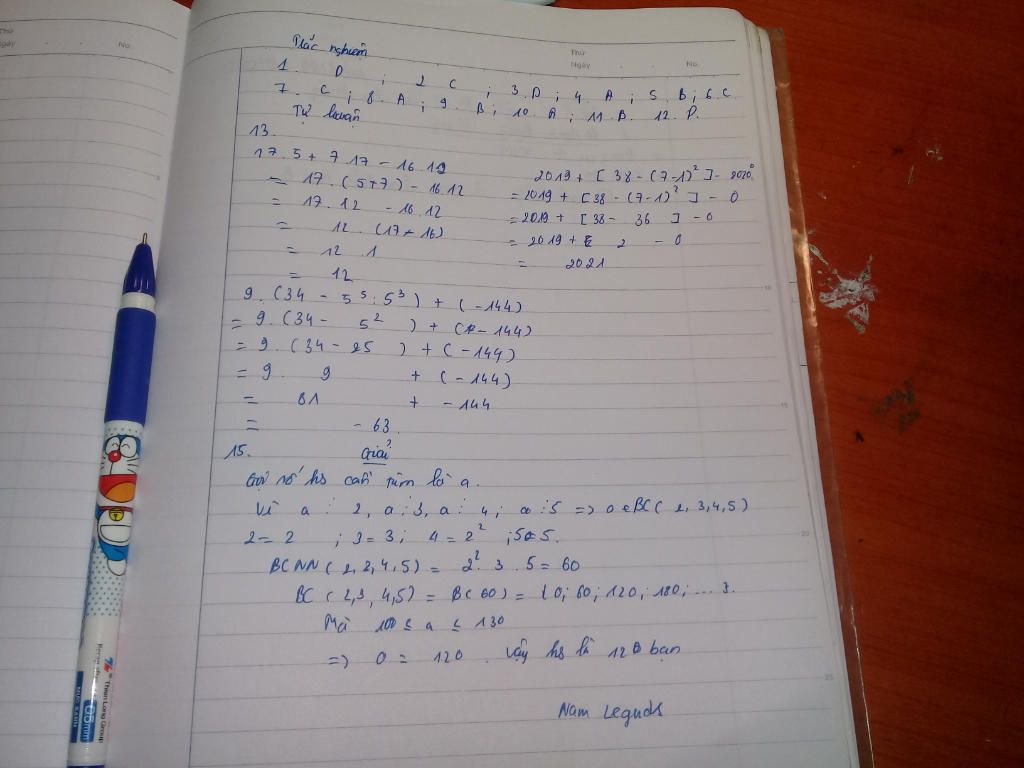 Thứ
Ngày
No.
Thứ
Ngày
No.
Trắc nghiệm
1. D ; 2 C ; 3. D ; 4 A ; 5 B ; 6. C
7. C ; 8. A ; 9. B ; 10. A ; 11 B. 12. D.
Tự luận
13.
17.5 + 7.17 - 16.12
= 17.(5+7) - 16.12
= 17.12 - 16.12
= 12.(17-16)
= 12.1
= 12
2019 + [38 - (7-1)²] - 2020⁰
= 2019 + [38 - (7-1)²] - 0
= 2019 + [38 - 36] - 0
= 2019 + 2 - 0
= 2021
9.(34 - 5⁵:5³) + (-144)
= 9.(34 - 5²) + (-144)
= 9.(34 - 25) + (-144)
= 9. 9 + (-144)
= 81 + -144
= -63.
15. Giải
Gọi số hs cần tìm là a.
Vì a ⋮ 2, a ⋮ 3, a ⋮ 4; a ⋮ 5 => a ∈ BC(2,3,4,5)
2 = 2 ; 3 = 3; 4 = 2² ; 5 = 5.
BCNN(2,2,4,5) = 2².3.5 = 60
BC(2,3,4,5) = B(60) = {0; 60; 120; 180; ...}.
Mà 100 ≤ a ≤ 130
=> a = 120. Vậy hs là 120 bạn
Nam Leguds
Thien Long Group